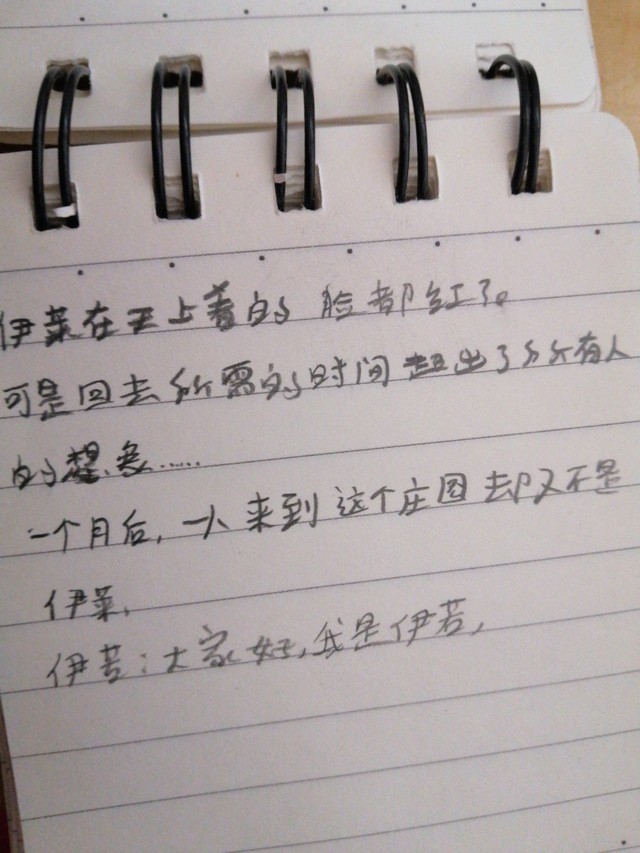 伊莱在天上看的脸都红了。
可是回去所需的时间超出了所有人
的想象……
一个月后,一人来到这个庄园却又不是
伊莱,
伊若:大家好,我是伊若,